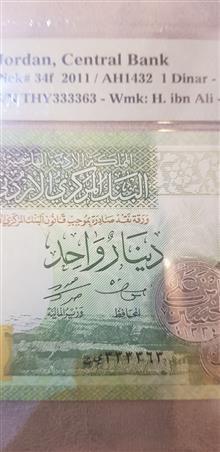 Jordan, Central Bank
Pick# 34f 2011 / AH1432 1 Dinar -
S/N THY333363 - Wmk: H. ibn Ali -
المملكة الأردنية الهاشمية
البنك المركزي الأردني
ورقة نقد صادرة بموجب قانون البنك المركزي
دينار واحد
المحافظ
وزير المالية
٣٣٣٣٦٣